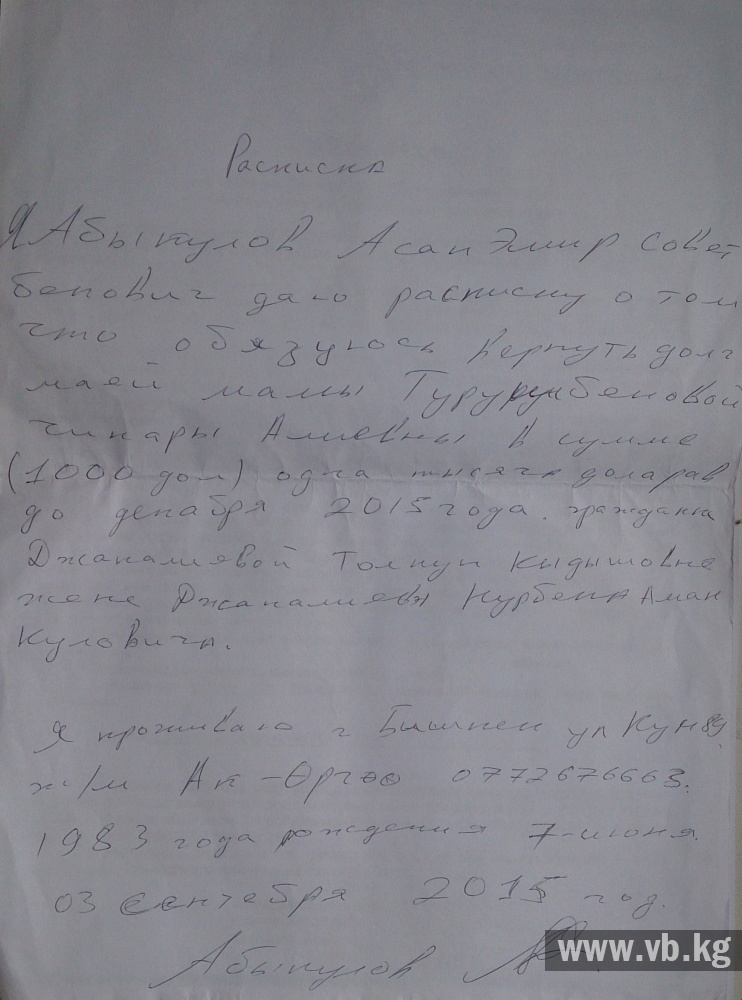 Расписка
Я Абыкулов Асан Эмир Совет
бекович даю расписку о том
что обязуюсь вернуть долг
маей мамы
Чинары Алиевны в сумме
(1000 дол) одна тысяча доларав
до декабря 2015 года. гражданка
Джакалиевой Толкун Кидышовне
жене Джакалиева Нурбека Аман
куловича.
Я проживаю г Бишкек ул Кун 89
ж/м Ак-Өргөо 0772676663.
1983 года рождения 7-июня.
03 сентября 2015 год.
Абыкулов
www.vb.kg